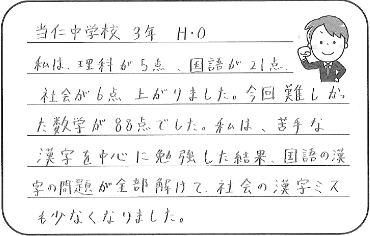 当仁中学校 3年 H・O
私は、理科が5点、国語が21点、
社会が6点上がりました。今回難しかっ
た数学が88点でした。私は、苦手な
漢字を中心に勉強した結果、国語の漢
字の問題が全部解けて、社会の漢字ミス
も少なくなりました。